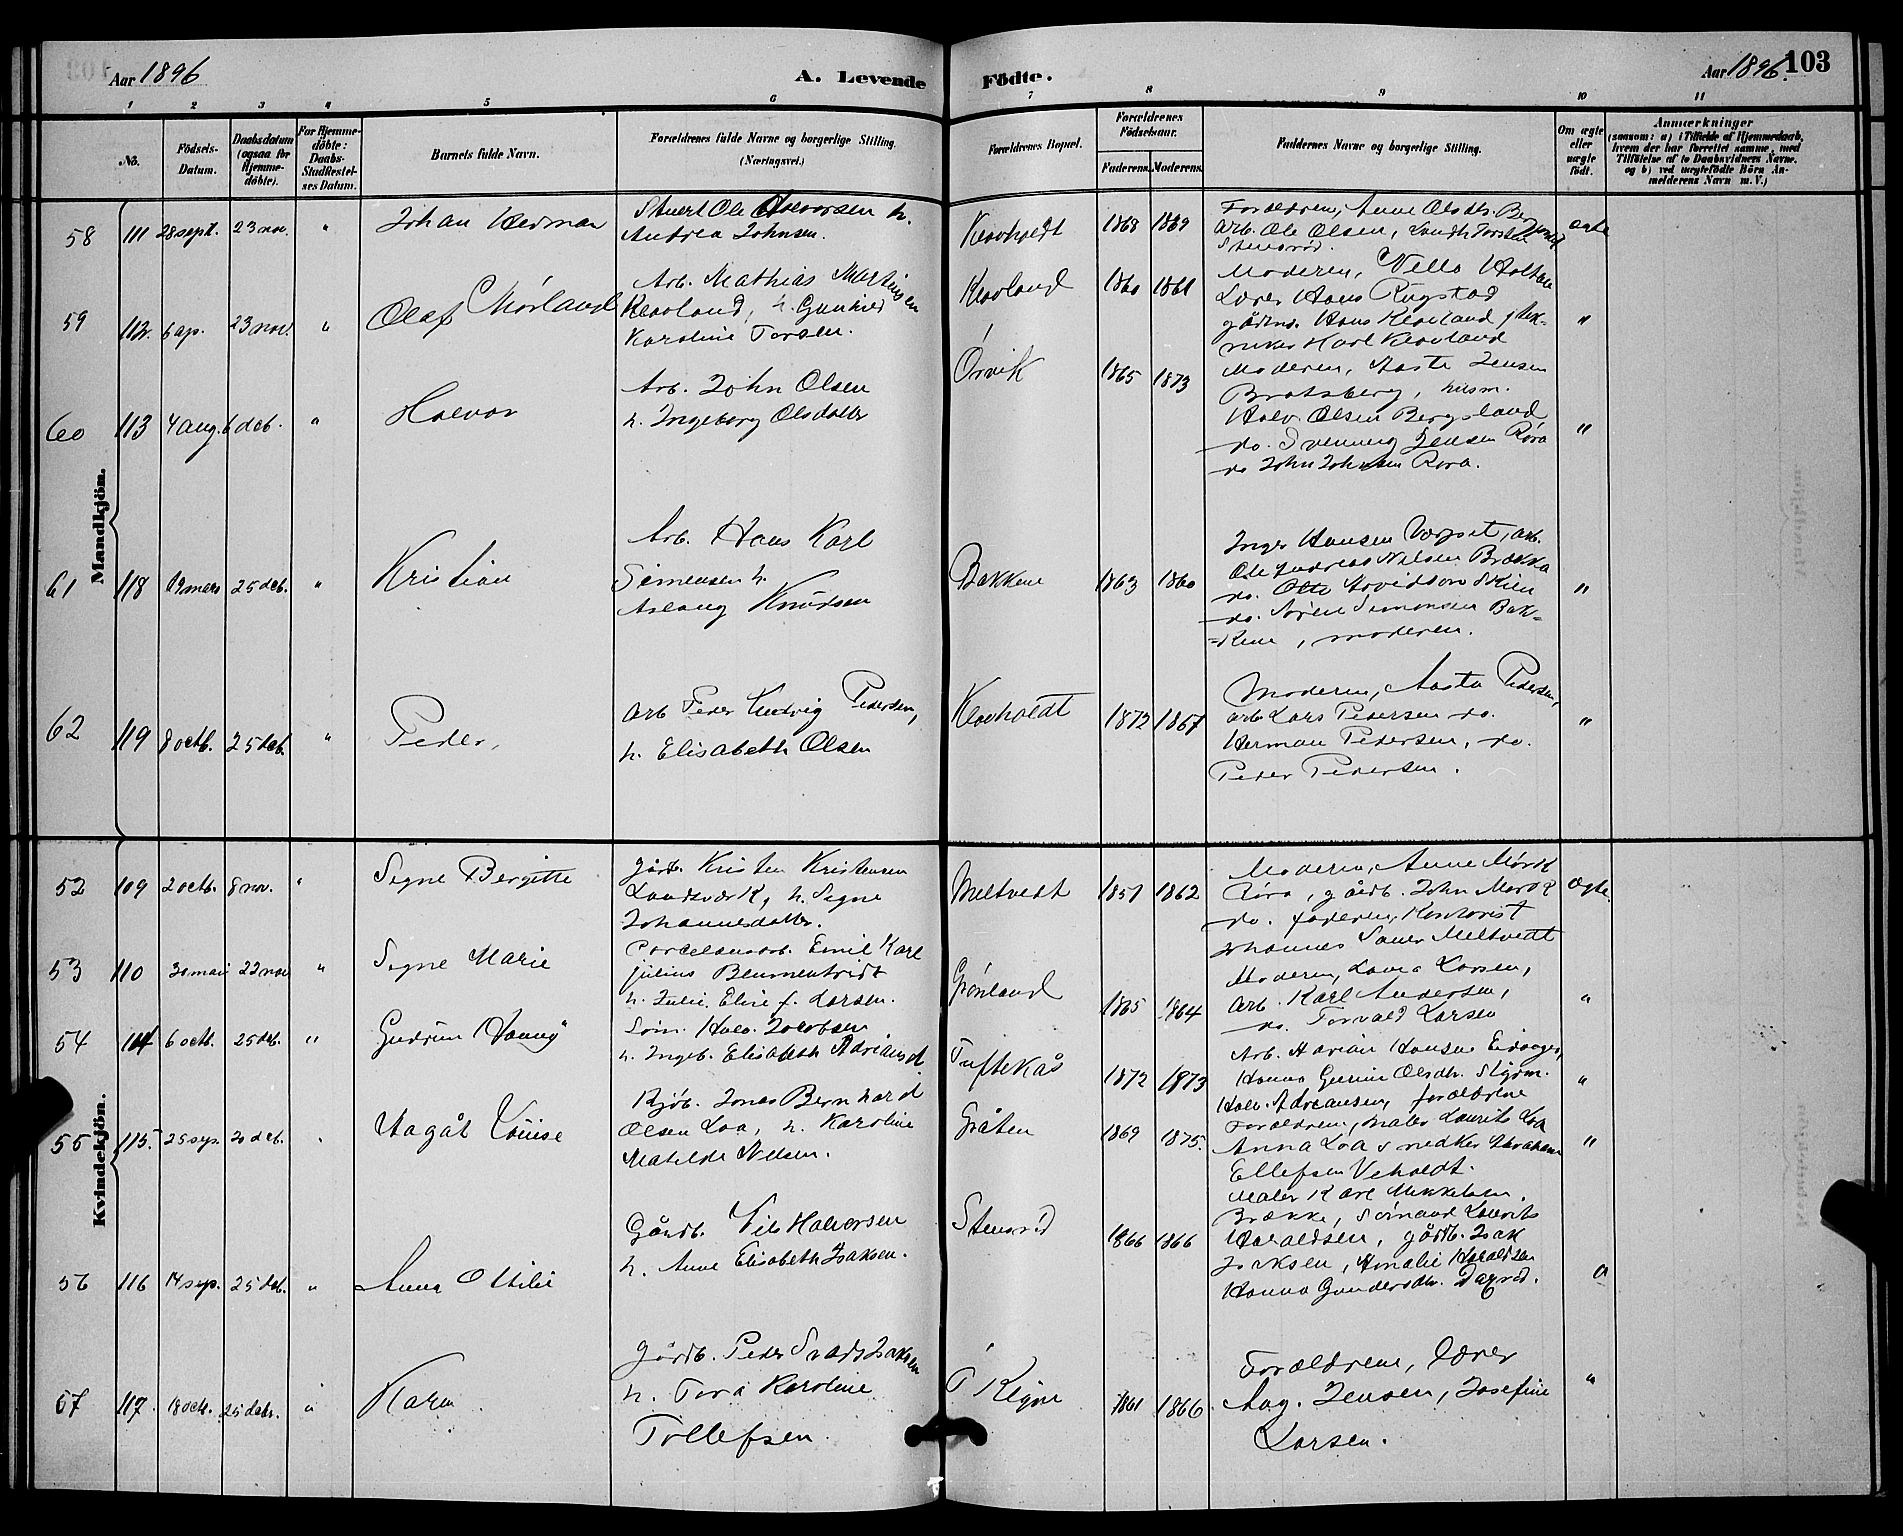 Aar 1896
A. Levende
Födte.
Aar 1896.
103
1 2 3 4 5 6 7 8 9 10 11
No.
Födsels-
Datum.
Daabsdatum
(ogsaa for
Hjemme-
döbte).
For Hjemme-
döbte:
Daabs-
Stadfæstel-
ses Datum.
Barnets fulde Navn.
Forældrenes fulde Navne og borgerlige Stilling.
(Næringsvei.)
Forældrenes Bopæl.
Forældrenes
Födselsaar.
Faderens.
Moderens.
Faddernes Navne og borgerlige Stilling.
Om ægte
eller
uægte
födt.
Anmærkninger
(saasom: a) i Tilfælde af Hjemmedaab,
hvem der har forrettet samme, med
Tilföielse af to Daabsvidners Navne,
og b) ved uægtefödte Börn An-
melderens Navn m. V.)
Mandkjön.
58 111 28 sept. 23 nov. " Johan Herman
Ole Halvorsen h.
Andrea Johnsen.
Klovholdt 1868 1869
Forældrene, Anne Olsdtr.
Arb. Ole Olsen,
Stensrød.
ægte
59 112. 6 ap. 23 nov. " Olaf Mørland
Arb. Mathias Martinsen
Klovland, h. Gunhild
Karoline Torsen.
Klovland 1860 1861
Moderen, Holtan
Lærer Hans Rugstad
gårdm. Hans Klovland,
Karl Klovland
"
60 113 4 aug. 6 deb. " Halvor
Arb. John Olsen
h. Ingeborg Olsdatter
Ørvik 1865 1873
Moderen, Aaste Jensen
Bratsberg, husm.
Halv. Olsen Bergsland
do. Svenning Jensen Røra
do John Johnsen Røra.
"
61 118 19 mars 25 deb. " Kristian
Arb. Hans Karl
Simensen h.
Aslaug Knudsen
Bakkene 1863 1860
Inger Hansen arb.
Ole Andreas Nilsen Brække
do. Otto Arvidson Skien
do. Søren Simonsen Bak-
=kene, moderen.
"
62 119 8 octb. 25 deb. " Peder,
Arb Peder Ludvig Pedersen,
h. Elisabeth Olsen
Klovholdt 1872 1867
Moderen, Aasta Pedersen,
arb Lars Pedersen do.
Herman Pedersen, do.
Peder Pedersen.
"
Kvindekjön.
52 109 2 octb. 8 nov. " Signe Bergitte
Gårdb. Kristen Kristensen
Landsværk, h. Signe
Johannesdatter.
Meltvedt 1857 1862
Moderen, Anne Mørk
Røra, gårdb. John Mørk
do. faderen, Kontorist
Johannes Meltvedt
Ægte
53 110 30 mai 22 nov " Signe Marie
Porcelænsarb. Emil Karl
Julius Blumentridt
h. Julie Elise f. Larsen.
Grønland 1865 1864
Moderen, Larsen,
Arb. Karl Andersen,
do. Torvald Larsen
"
54 114 6 octb. 25 deb. " Gudrun
Søm. Halv. Jacobsen
h. Ingeb. Elisabeth
Tuftekås 1872 1873
Arb. Hansen Eidanger,
Olsdtr.
Halv. Adriansen, forældrene
"
55 115. 25 sep. 20 deb. " Dagåt Louise
Kjøb. Jonas Bernhard
Olsen Loa, h. Karoline
Matilde Nilsen.
Gråten 1869 1875.
Forældrene, maler Laurits Loa
Anna Loa snedker Abraham
Ellefsen Veholdt.
"
56 116 14 sep. 25 deb. " Anna Otilie
Gårdb. Nils Halvorsen
h. Anne Elisabeth Isaksen.
Stensrød 1866 1866
Maler Karl Mikkelsen
Brække, Laurits
Haraldsen, gårdb. Isak
Isaksen, Amalie Haraldsen
Hanna Gundersdtr.
"
57 117. 18 octb. 25 deb. " Kara
Gårdb. Peder
h. Tora Karoline
Tollefsen.
1861 1866
Forældrene, Lærer
Aug. Jensen, Josefine
Larsen.
"